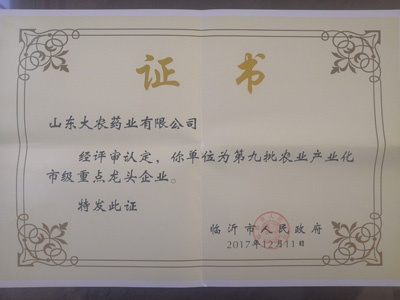 证书
山东大农药业有限公司
经评审认定，你单位为第九批农业产业化
市级重点龙头企业。
特发此证
临沂市人民政府
2017年12月11日